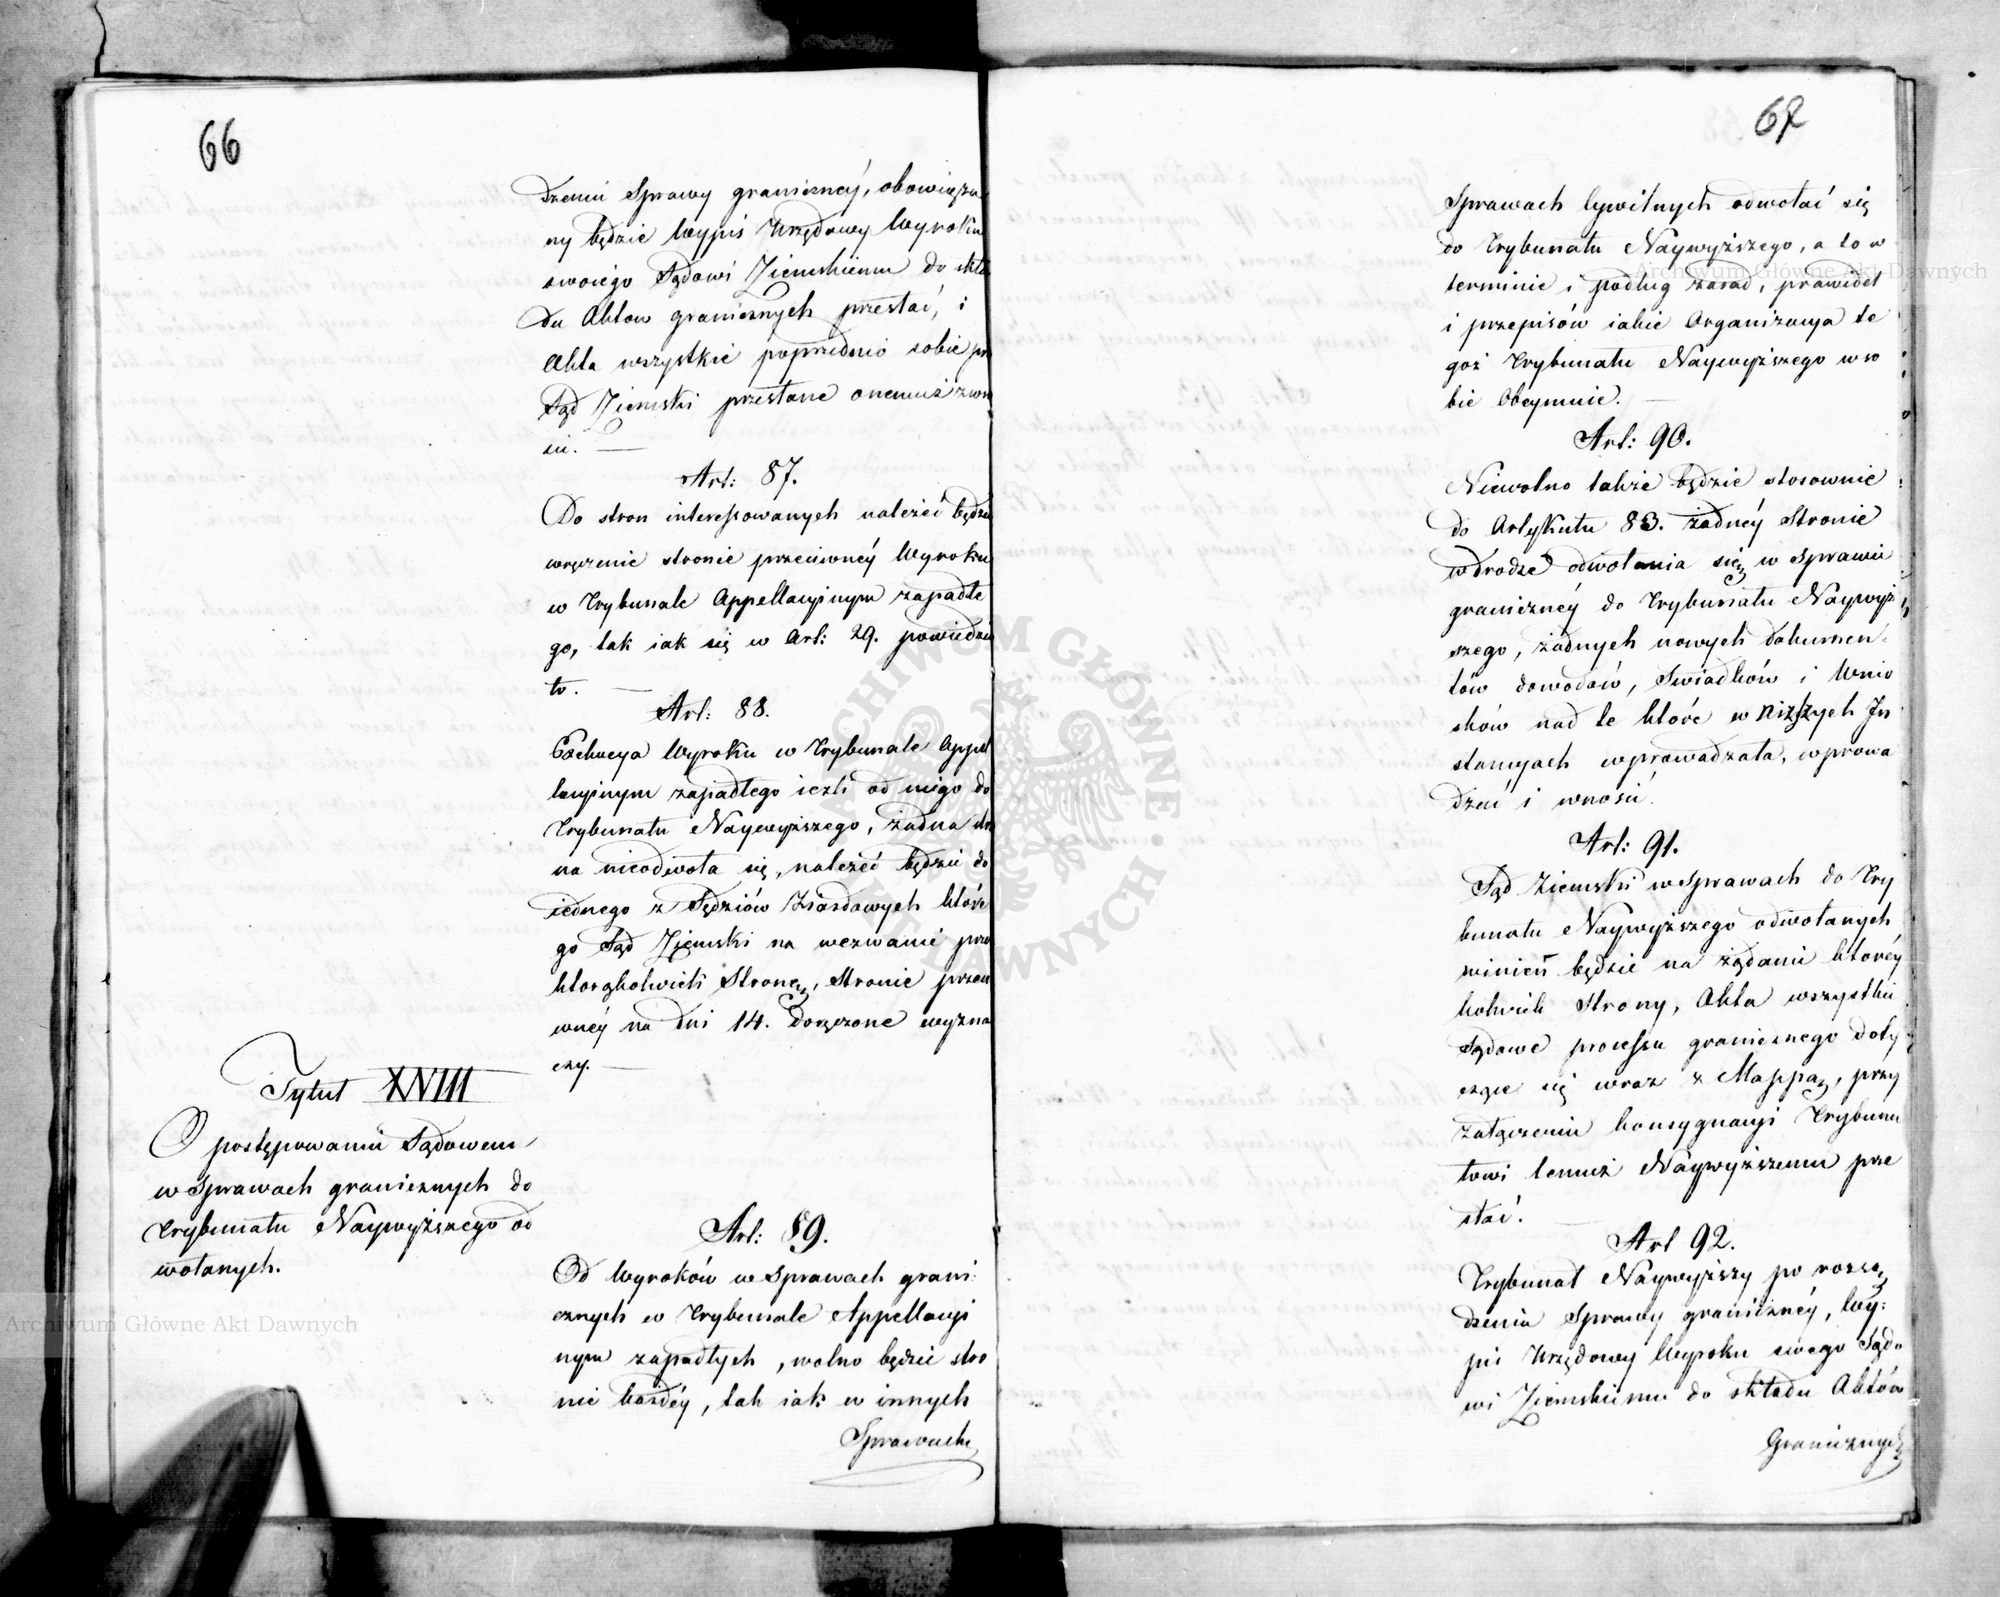 66
dzeniu Sprawy granicznéy, obowiąza
ny będzie Wypis Urzędowy Wyroku
swoiego Sądowi Ziemskiemu do skła
du Aktow granicznych przesłać, i
Akta wszystkie poprzednio sobie pr
Sąd Ziemski przesłane onemuż zwró
cić.
Art: 87.
Do stron interessowanych należeć będzie
wręczenie stronie przeciwnéy Wyroku
w Trybunale Appellacyinym zapadłe
go, tak iak się w Art: 29. powiedzia
ło.
Art: 88.
Exekucya Wyroku w Trybunale Appel
lacyinym zapadłego ieżli od niego do
Trybunału Naywyższego, żadna stro
na nieodwoła się, należéć będzie do
iednego z Sędziów Ziazdowych które
go Sąd Ziemski na wezwanie prze
ktorąkolwiek Stronę, Stronie przeci
wnéy na dni 14. doręczone wyzna
czy.
Tytuł XVIII
O postępowaniu Sądowem
w Sprawach granicznych do
Trybunału Naywyższego od
wołanych.
Art: 89.
Od Wyroków w Sprawach grani
cznych w Trybunale Appellacyi
nym zapadłych, wolno będzie stro
nie każdéy, tak iak w innych
Sprawach
67
Sprawach Cywilnych odwołać się
do Trybunału Naywyższego, a to w
terminie i podług zasad, prawideł
i przepisów iakie Organizacya te
goż Trybunału Naywyższego w so
bie Obeymuie.
Art: 90.
Niewolno także będzie stosownie
do Artykułu 83. żadnéy Stronie
w drodze odwołania się w Sprawie
granicznéy do Trybunału Naywyż
szego, żadnych nowych dokumen-
tów dowodów, Swiadków i Wnio
sków nad te które w niższych In
stancyach wprowadzała, wprowa
dzać i wnosić.
Art: 91.
Sąd Ziemski w Sprawach do Try
bunału Naywyższego odwołanych
winień będzie na żądanie któréy
kolwiek Strony, Akta wszystkie
Sądowe processu granicznego doty
czące się wraz z Mappą, przy
załączeniu konsygnacyi Trybuna
łowi temuż Naywyższemu prze
słać.
Art 92.
Trybunał Naywyższy po rozsą
dzeniu Sprawy granicznéy, Wy:
pis Urzędowy Wyroku swego Sądo
wi Ziemskiemu do składu Aktów
Granicznych
Archiwum Główne Akt Dawnych
Archiwum Główne Akt Dawnych
ARCHIWUM GŁÓWNE AKT DAWNYCH